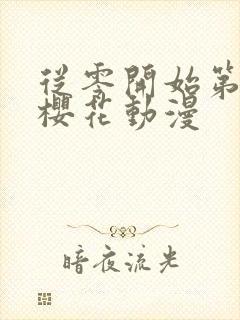 從零開始第
櫻花動漫
暗夜流光